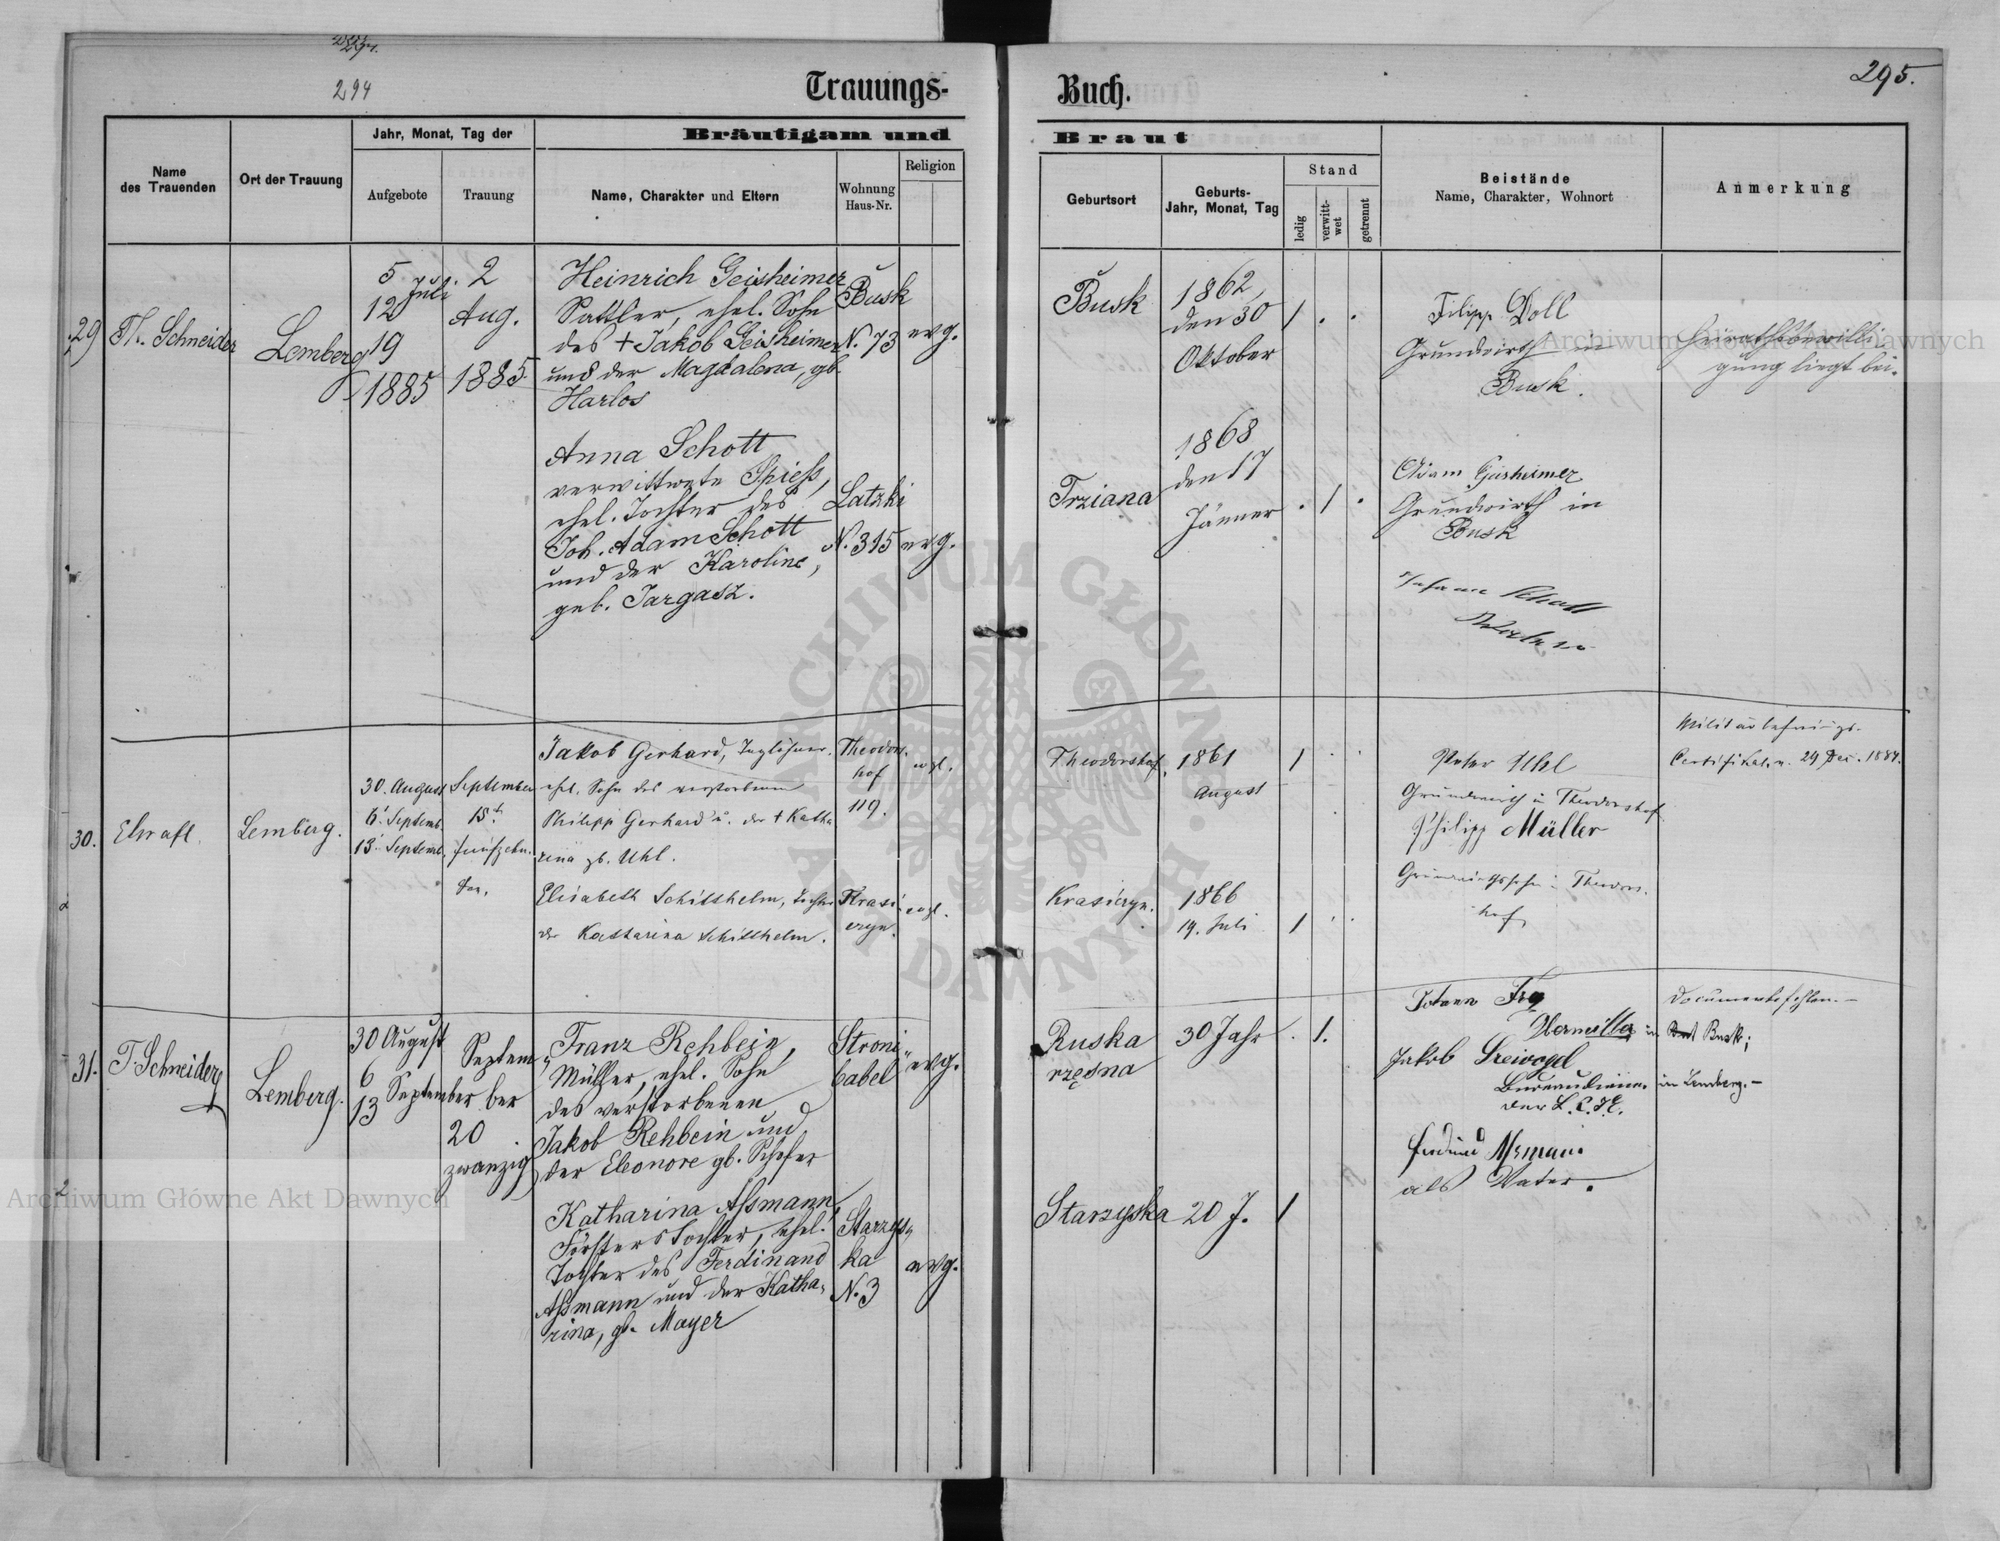 294
Trauungs-
Name
des Trauenden
Ort der Trauung
Jahr, Monat, Tag der
Aufgebote
Trauung
Bräutigam und
Name, Charakter und Eltern
Wohnung
Haus-Nr.
Religion
29
Th. Schneider
Lemberg
5
12 Juli
19
1885
2
Aug.
1885
Heinrich Geisheimer
Sattler, ehel. Sohn
des + Jakob Geisheimer
und der Magdalena, gb.
Harlos
Busk
N. 73
evg.
Anna Schott
verwittwete Spieß,
ehel. Tochter des
Joh. Adam Schott
und der Karoline,
geb. Jargasz.
Latzki
N. 315
evg.
30.
Lemberg.
30. August
6. Septemb.
13. Septemb.
September
15t
fünfzehn-
ten.
Jakob Gerhard, Taglöhner,
ehel. Sohn des verstorbenen
Philipp Gerhard u. der + Katha
rina gb. Uhl.
Theodors-
hof
119.
evgl.
Elisabeth Schillhelm, Tochter
der Katharina Schillhelm.
Krasi
czyn.
evgl.
31.
T. Schneider
Lemberg.
30 August
6
13 September
Septem
ber
20
zwanzig
Franz Rehbein,
Müller, ehel. Sohn
des verstorbenen
Jakob Rehbein und
der Eleonore gb. Schefer
Stroni
babel
evg.
Katharina Aßmann,
Försterstochter, ehel.
Tochter des Ferdinand
Aßmann und der Katha-
rina, gb. Mayer
Starzys-
ka
N. 3
evg.
295.
Buch.
Braut
Geburtsort
Geburts-
Jahr, Monat, Tag
Stand
ledig
verwitt-
wet
getrennt
Beistände
Name, Charakter, Wohnort
Anmerkung
Busk
1862
den 30
Oktober
1
Filipp Doll
Grundwirth in
Busk.
Heirathsbewilli-
gung liegt bei.
Trziana
1868
den 17
Jänner
1
Adam Geisheimer
Grundwirth in
Busk
Theodorshof.
1861
August
1
Peter Uhl
Grundwirth in Theodorshof
Philipp Müller
Grundwirthssohn in Theodors-
hof
Certifikat v. 24 Dec. 1884.
Krasiczyn.
1866
19. Juli
1
Ruska
rzęsna
30 Jahr
1.
Johann
in Busk;
Jakob
in Lemberg.-
als Vater.
Starzyska
20 J.
1
Archiwum Główne Akt Dawnych
Archiwum Główne Akt Dawnych
ARCHIWUM GŁÓWNE AKT DAWNYCH